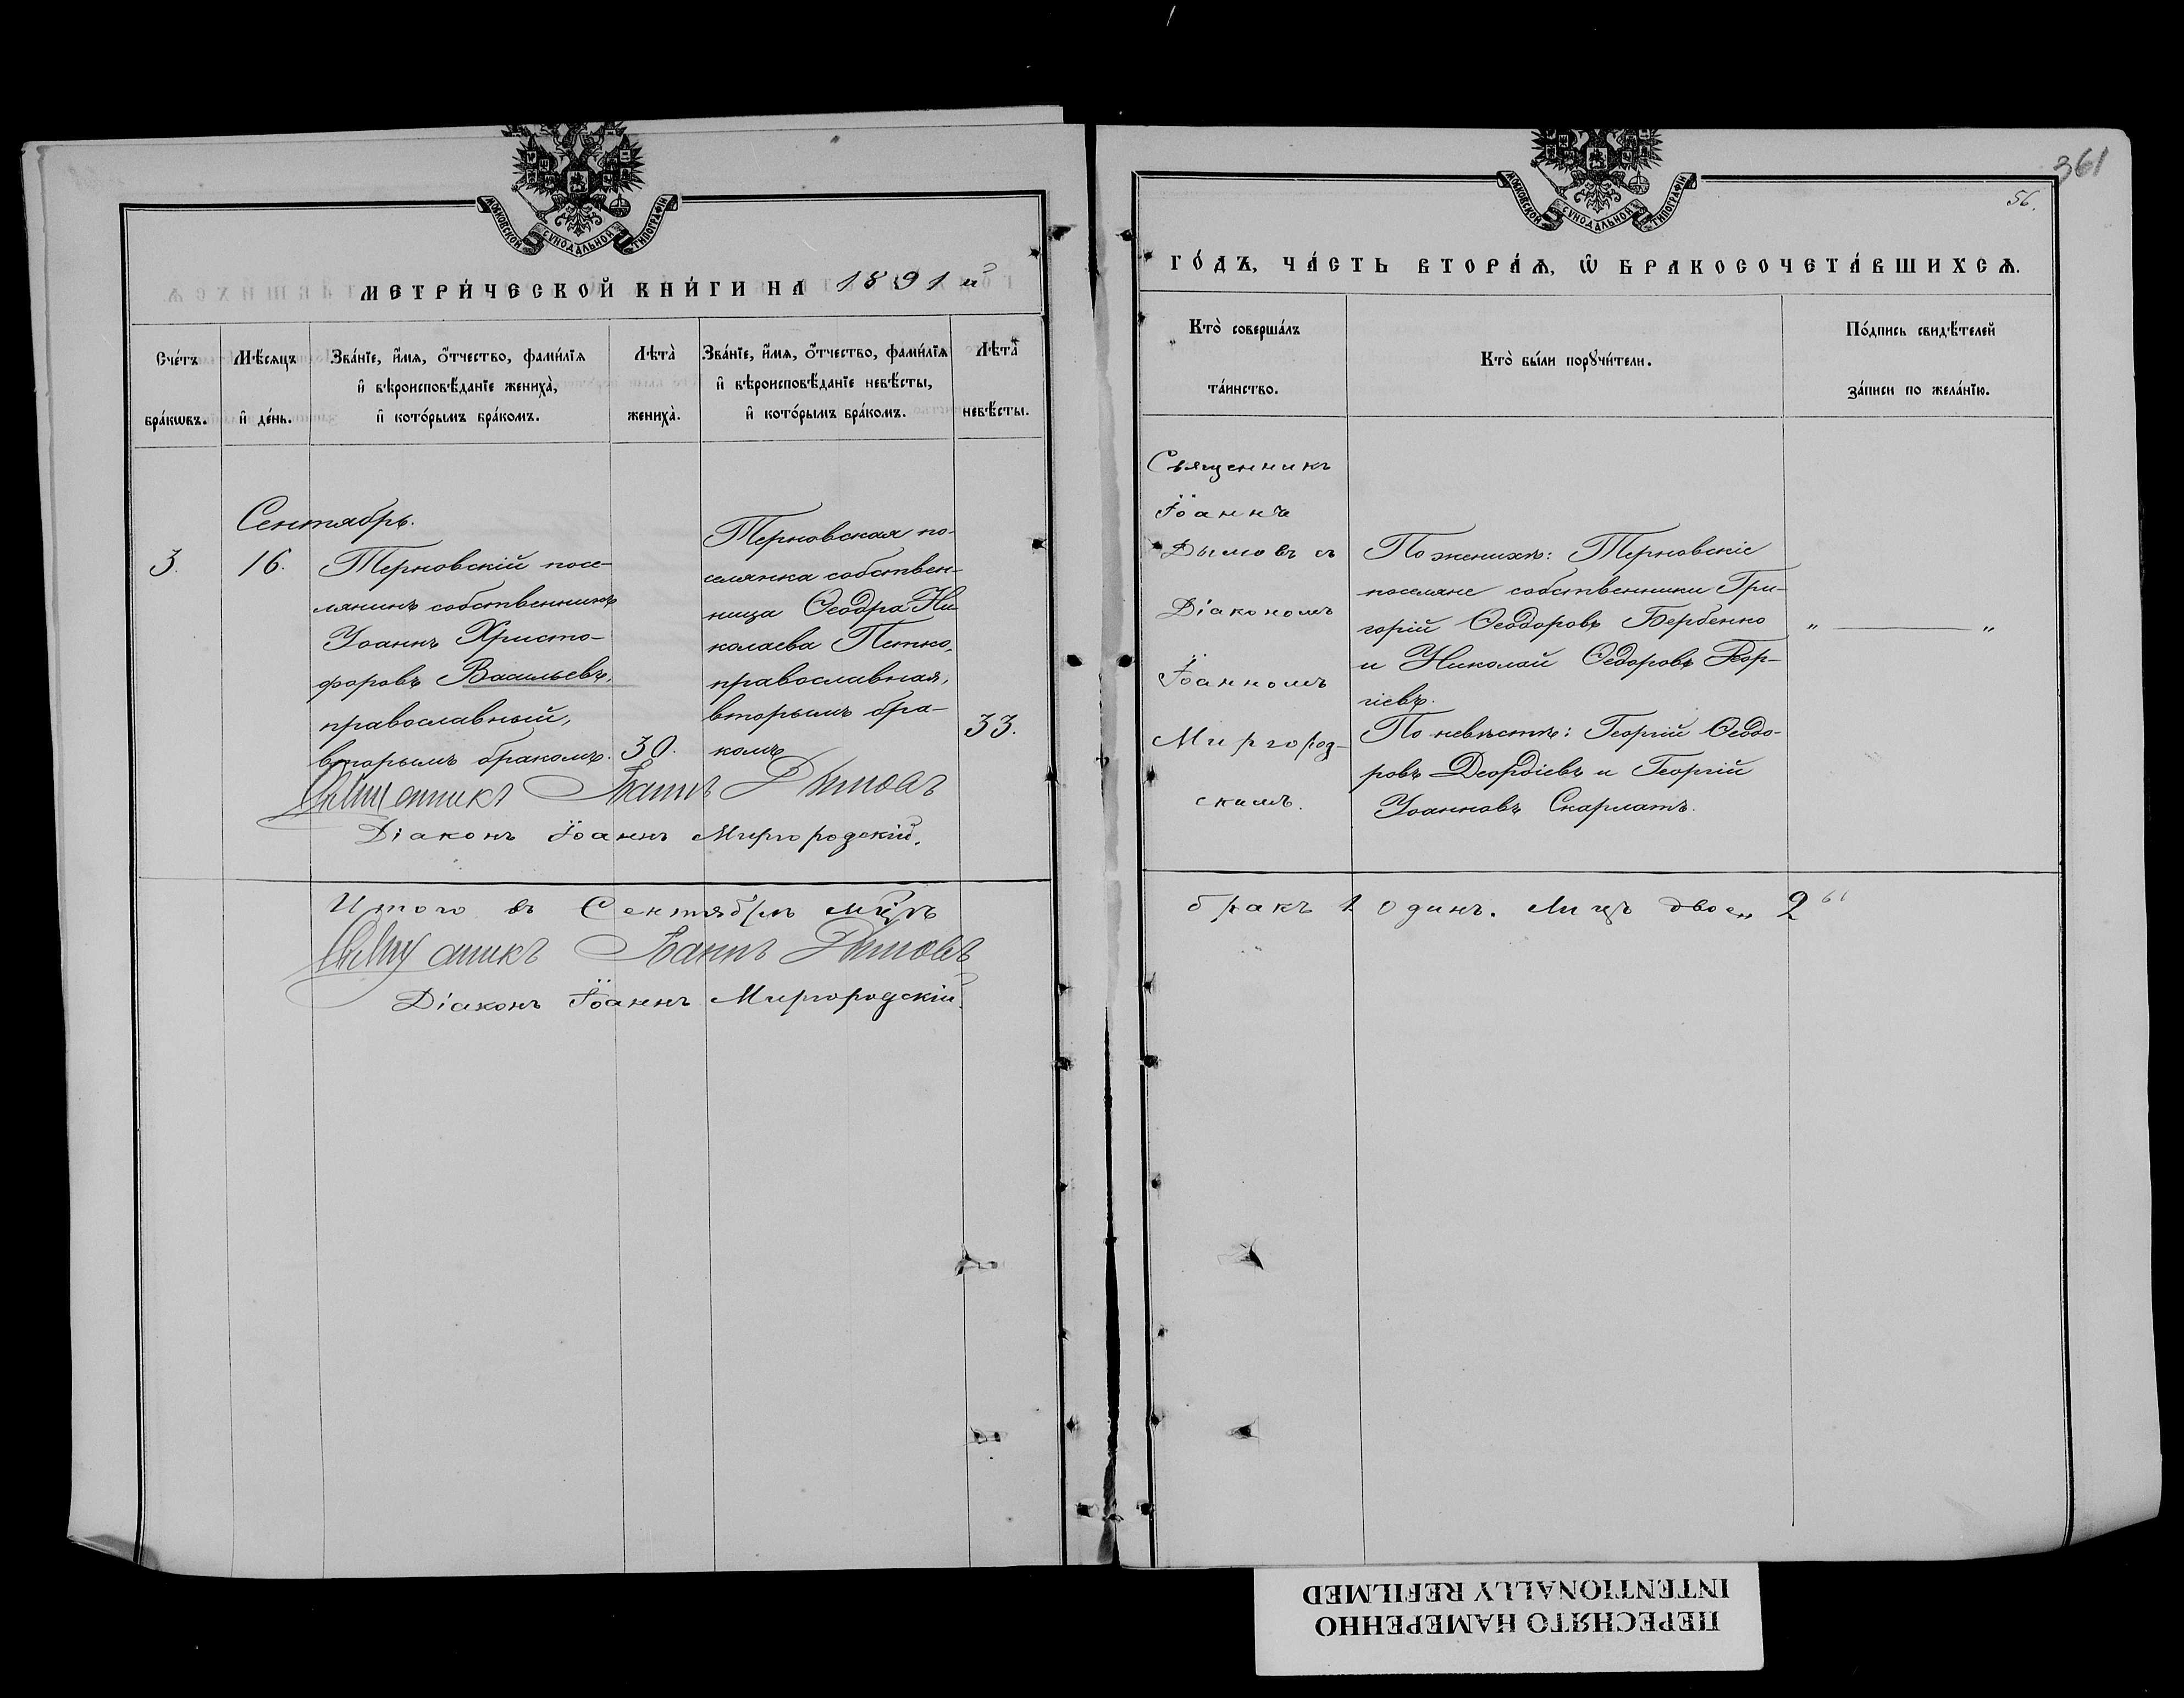 361
56.
МОСКОВСКОЙ СѴНОДАЛЬНОЙ ТИПОГРАФІИ
МЕТРИ́ЧЕСКОЙ КНИ́ГИ НА 1891 й
Сче́тъ бра́кѡвъ.
Мѣ́сяцъ и҆ де́нь.
Зва́нїе, и҆́мѧ, ѻ҆́тчество, фами́лїѧ
и҆ вѣроисповѣ́данїе жениха̀,
и҆ кото́рымъ бра́комъ.
Лѣта̀ жениха̀.
Зва́нїе, и҆́мѧ, ѻ҆́тчество, фами́лїѧ
и҆ вѣроисповѣ́данїе невѣ́сты,
и҆ кото́рымъ бра́комъ.
Лѣта̀ невѣ́сты.
Сентябрь.
3.
16.
Терновскій посе-
лянинъ собственникъ
Іоаннъ Христо-
форовъ Васильевъ,
православный,
вторымъ бракомъ.
30.
Терновская по-
селянка собствен-
ница Ѳеодра Ни-
колаева Петко,
православная,
вторымъ бра-
комъ
33.
Священникъ Іоаннъ Дымовъ
Діаконъ Іоаннъ Миргородскій.
Итого въ Сентябрѣ мцѣ
Священникъ Іоаннъ Дымовъ
Діаконъ Іоаннъ Миргородскій.
МОСКОВСКОЙ СѴНОДАЛЬНОЙ ТИПОГРАФІИ
ГО́ДЪ, ЧА́СТЬ ВТОРА́Ѧ, Ѡ҆ БРАКОСОЧЕТА́ВШИХСѦ.
Кто̀ соверша́лъ
та́инство.
Кто̀ бы́ли порꙋчи́тели.
По́дпись свидѣ́телей
за́писи по жела́нїю.
Священникъ
Іоаннъ
Дымовъ съ
Діакономъ
Іоанномъ
Миргород-
скимъ.
По женихѣ: Терновскіе
поселяне собственники Гри-
горій Ѳеодоровъ Бербенко
и Николай Ѳедоровъ Геор-
гіевъ.
По невѣстѣ: Георгій Ѳеодо-
ровъ Деордіевъ и Георгій
Іоанновъ Скарлатъ.
" — "
бракъ 1 одинъ. Лицъ двое " 2 "
ПЕРЕСНЯТО НАМЕРЕННО
INTENTIONALLY REFILMED